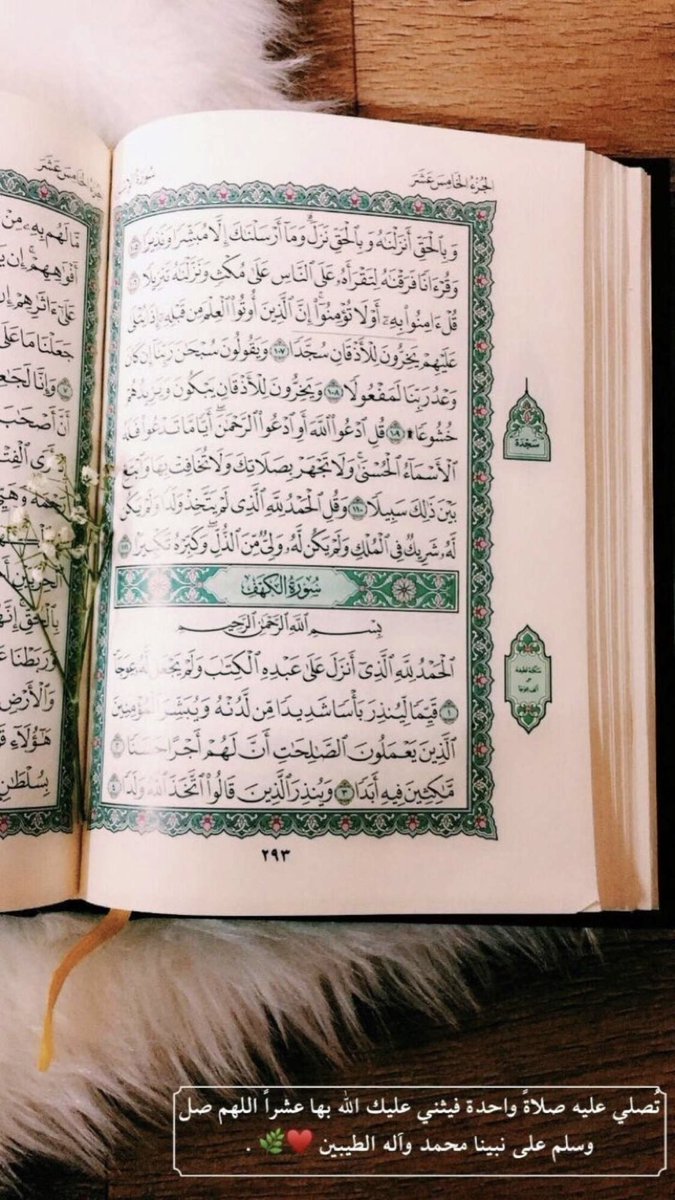 الجُزْءُ الخَامِسَ عَشَرَ
سُورَةُ
وَبِٱلْحَقِّ أَنزَلْنَٰهُ وَبِٱلْحَقِّ نَزَلَ ۗ وَمَآ أَرْسَلْنَٰكَ إِلَّا مُبَشِّرًا وَنَذِيرًا ١٠٥
وَقُرْءَانًا فَرَقْنَٰهُ لِتَقْرَأَهُۥ عَلَى ٱلنَّاسِ عَلَىٰ مُكْثٍ وَنَزَّلْنَٰهُ تَنزِيلًا ١٠٦
قُلْ ءَامِنُوا۟ بِهِۦٓ أَوْ لَا تُؤْمِنُوٓا۟ ۚ إِنَّ ٱلَّذِينَ أُوتُوا۟ ٱلْعِلْمَ مِن قَبْلِهِۦٓ إِذَا يُتْلَىٰ
عَلَيْهِمْ يَخِرُّونَ لِلْأَذْقَانِ سُجَّدًا ١٠٧ وَيَقُولُونَ سُبْحَٰنَ رَبِّنَآ إِن كَانَ
وَعْدُ رَبِّنَا لَمَفْعُولًا ١٠٨ وَيَخِرُّونَ لِلْأَذْقَانِ يَبْكُونَ وَيَزِيدُهُمْ
خُشُوعًا ۩ ١٠٩ قُلِ ٱدْعُوا۟ ٱللَّهَ أَوِ ٱدْعُوا۟ ٱلرَّحْمَٰنَ ۖ أَيًّا مَّا تَدْعُوا۟ فَلَهُ
ٱلْأَسْمَآءُ ٱلْحُسْنَىٰ ۚ وَلَا تَجْهَرْ بِصَلَاتِكَ وَلَا تُخَافِتْ بِهَا وَٱبْتَغِ
بَيْنَ ذَٰلِكَ سَبِيلًا ١١٠ وَقُلِ ٱلْحَمْدُ لِلَّهِ ٱلَّذِى لَمْ يَتَّخِذْ وَلَدًا وَلَمْ يَكُن
لَّهُۥ شَرِيكٌ فِى ٱلْمُلْكِ وَلَمْ يَكُن لَّهُۥ وَلِىٌّ مِّنَ ٱلذُّلِّ ۖ وَكَبِّرْهُ تَكْبِيرًۢا ١١١
سُورَةُ الكَهْفِ
بِسْمِ ٱللَّهِ ٱلرَّحْمَٰنِ ٱلرَّحِيمِ
ٱلْحَمْدُ لِلَّهِ ٱلَّذِىٓ أَنزَلَ عَلَىٰ عَبْدِهِ ٱلْكِتَٰبَ وَلَمْ يَجْعَل لَّهُۥ عِوَجَا
١ قَيِّمًا لِّيُنذِرَ بَأْسًا شَدِيدًا مِّن لَّدُنْهُ وَيُبَشِّرَ ٱلْمُؤْمِنِينَ
ٱلَّذِينَ يَعْمَلُونَ ٱلصَّٰلِحَٰتِ أَنَّ لَهُمْ أَجْرًا حَسَنًا ٢
مَّٰكِثِينَ فِيهِ أَبَدًا ٣ وَيُنذِرَ ٱلَّذِينَ قَالُوا۟ ٱتَّخَذَ ٱللَّهُ وَلَدًا ٤
٢٩٣
سَجْدَة
سكتة لطيفة
على
ألف عوجا
مَّا لَهُم بِهِۦ مِنْ
أَفْوَٰهِهِمْ ۚ إِن
عَلَىٰٓ ءَاثَٰرِهِمْ إِن
جَعَلْنَا مَا عَلَى
وَإِنَّا
أَنَّ أَصْحَٰبَ
وَهَيِّ
ٱلْحِزْبَيْنِ
بِٱلْحَقِّ ۚ
وَرَبَطْنَا
وَٱلْأَرْضِ
هَٰٓؤُلَآءِ
بِسُلْطَٰنٍ
تُصلي عليه صلاةً واحدة فيثني عليك الله بها عشراً اللهم صل
وسلم على نبينا محمد وآله الطيبين ♥️🌿 .